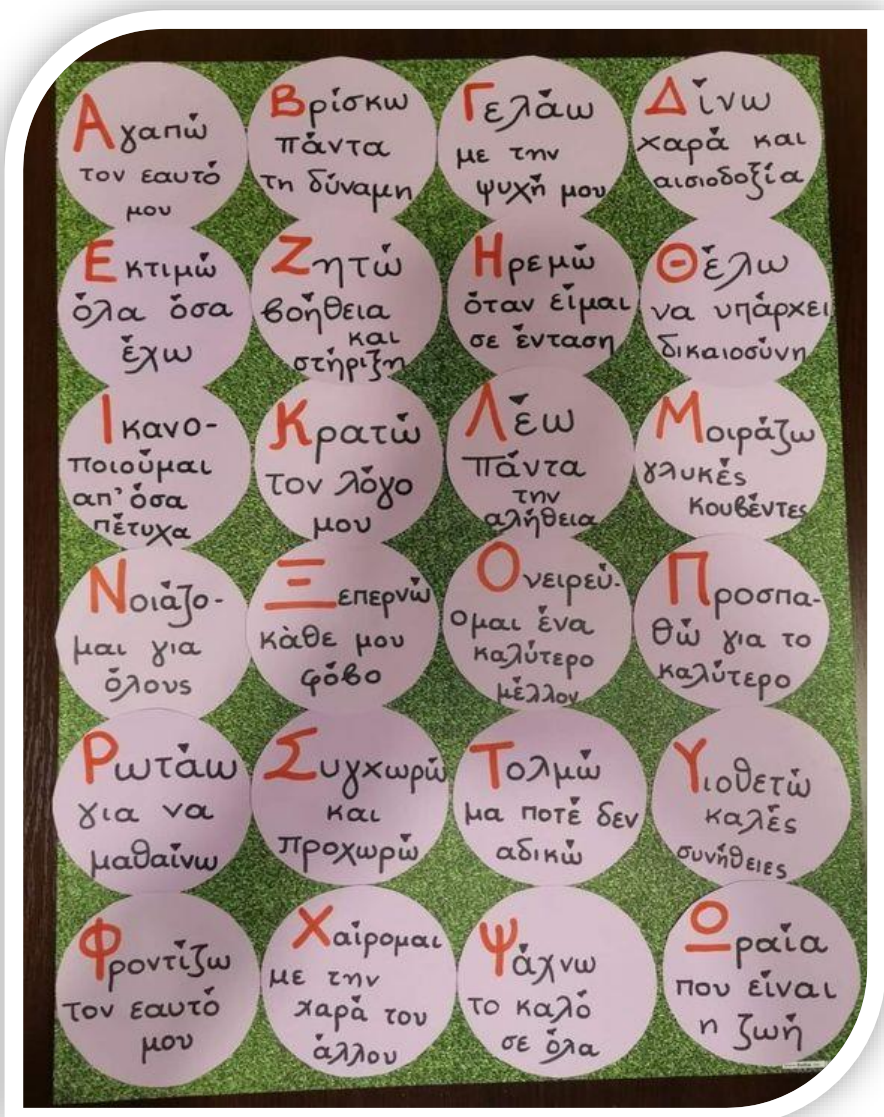 Αγαπώ
τον εαυτό
μου
Βρίσκω
πάντα
τη δύναμη
Γελάω
με την
ψυχή μου
Δίνω
χαρά και
αισιοδοξία
Εκτιμώ
όλα όσα
έχω
Ζητώ
βοήθεια
και
στήριξη
Ηρεμώ
όταν είμαι
σε ένταση
Θέλω
να υπάρχει
δικαιοσύνη
Ικανο-
ποιούμαι
απ' όσα
πέτυχα
Κρατώ
τον λόγο
μου
Λέω
πάντα
την
αλήθεια
Μοιράζω
γλυκές
κουβέντες
Νοιάζο-
μαι για
όλους
Ξεπερνώ
κάθε μου
φόβο
Ονειρεύ-
ομαι ένα
καλύτερο
μέλλον
Προσπα-
θώ για το
καλύτερο
Ρωτάω
για να
μαθαίνω
Συγχωρώ
και
προχωρώ
Τολμώ
μα ποτέ δεν
αδικώ
Υιοθετώ
καλές
συνήθειες
Φροντίζω
τον εαυτό
μου
Χαίρομαι
με την
χαρά του
άλλου
Ψάχνω
το καλό
σε όλα
Ωραία
που είναι
η ζωή